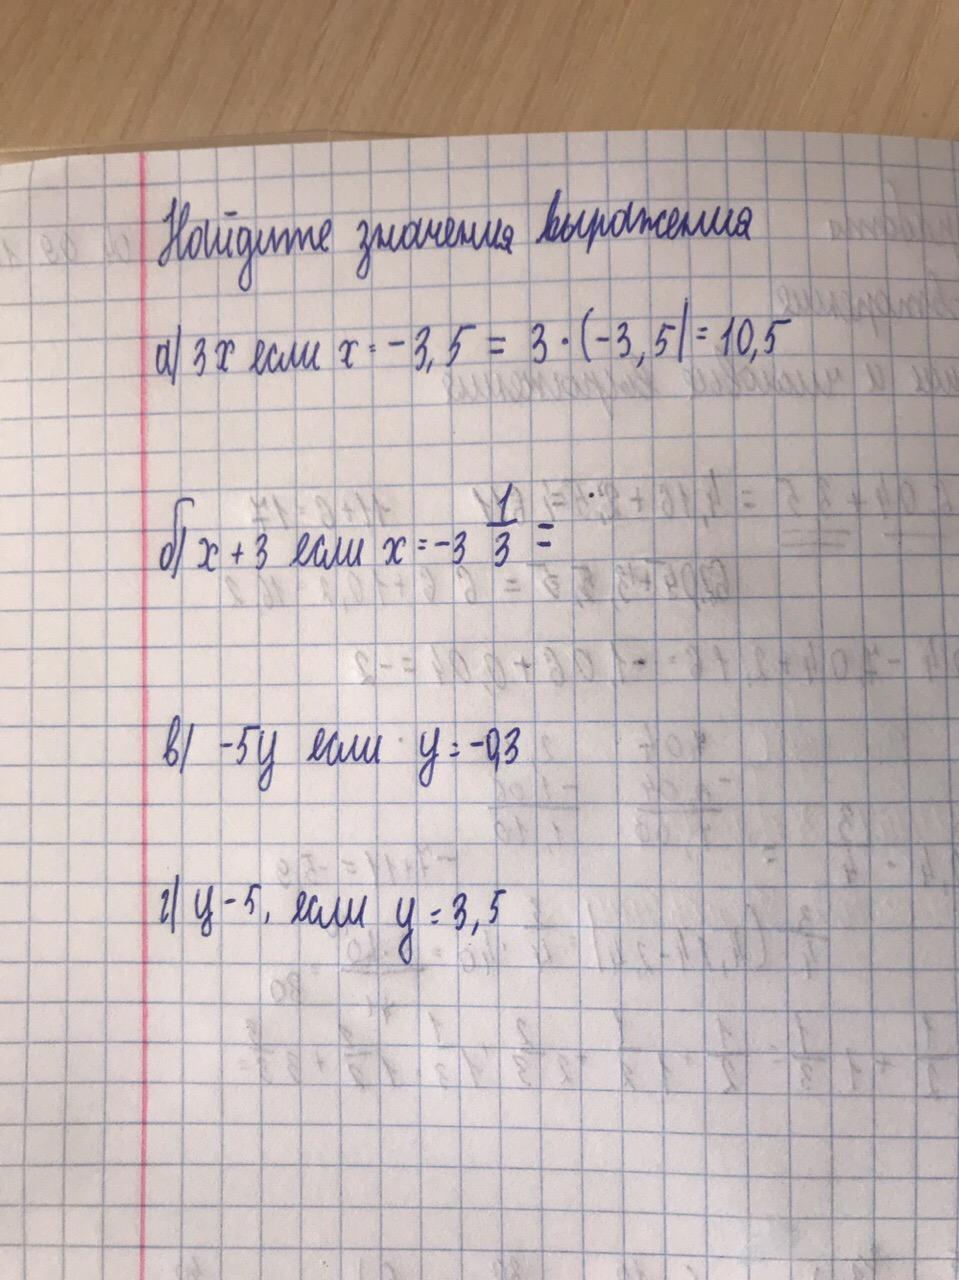 Найдите значения выражения
а) 3х если х = -3,5 = 3·(-3,5) = 10,5
б) х + 3 если х = -3 1/3 =
в) -5у если у = -0,3
г) у - 5, если у = 3,5